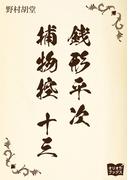 野村胡堂
銭形平次
捕物控 十三
オリオンブックス